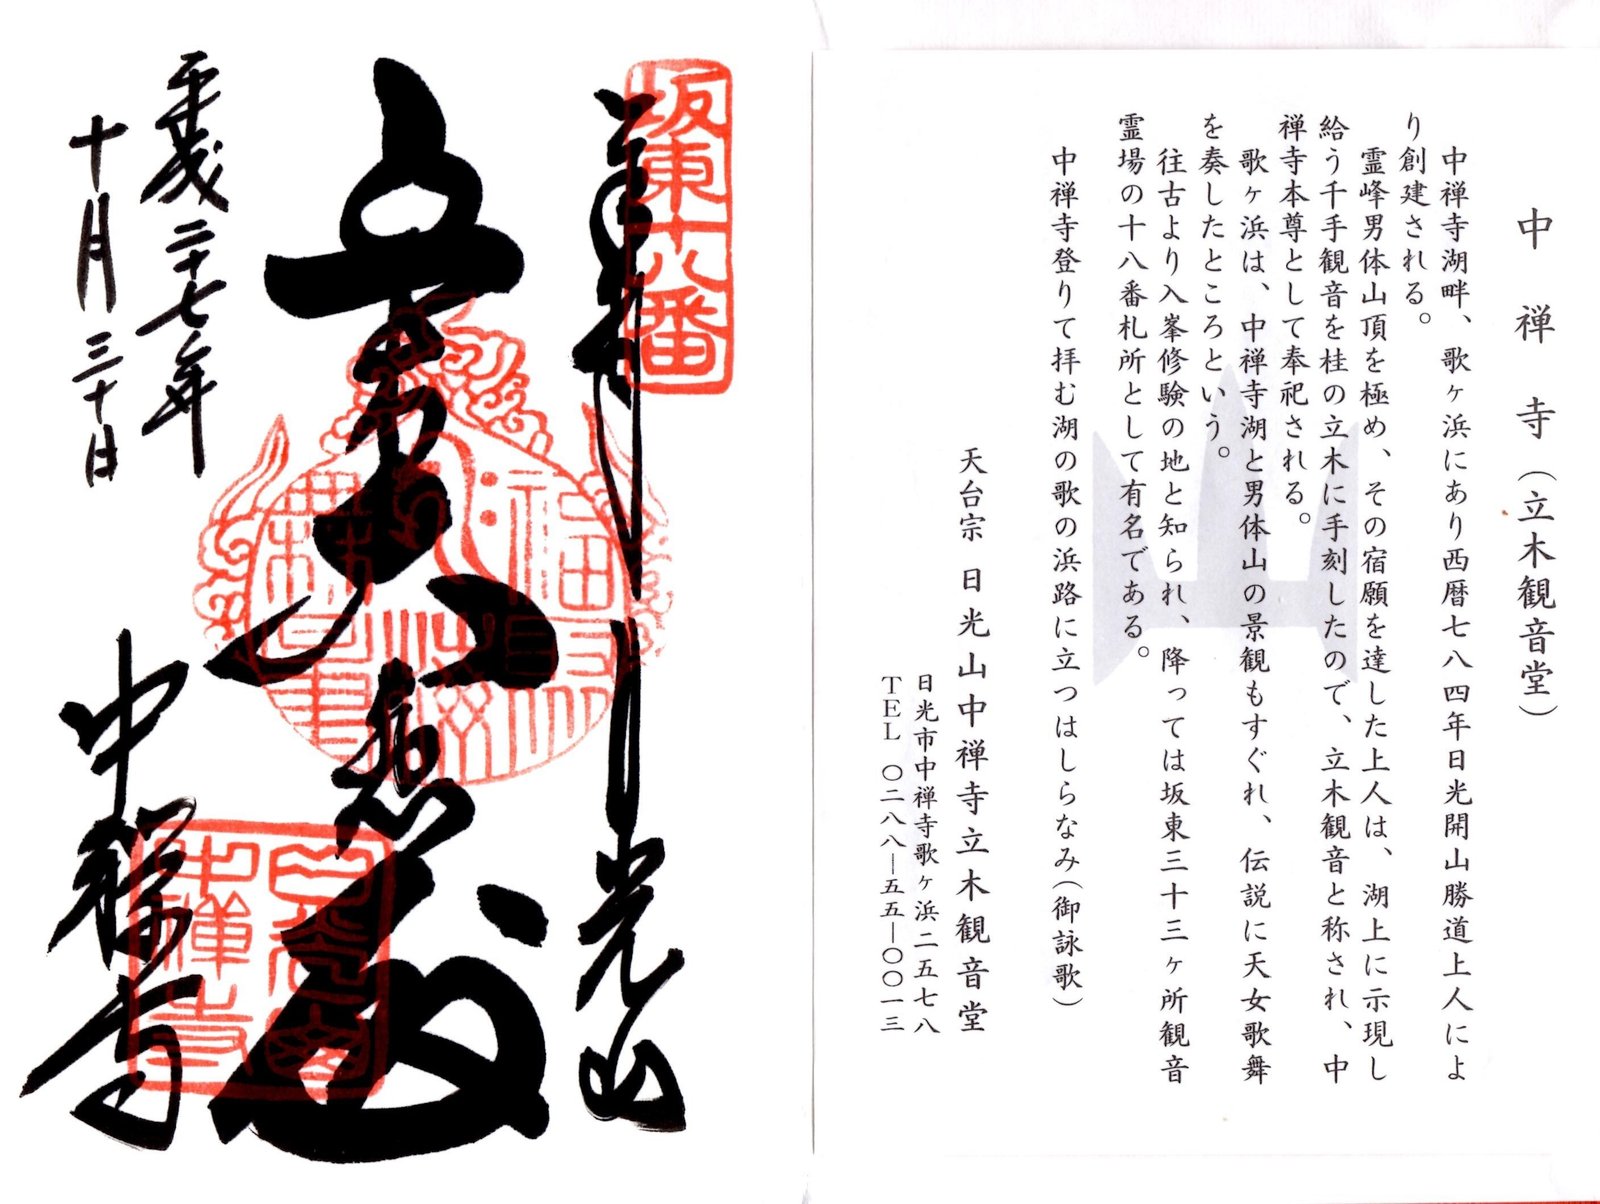 中禅寺（立木観音堂）
中禅寺湖畔、歌ヶ浜にあり西暦七八四年日光開山勝道上人によ
り創建される。
霊峰男体山頂を極め、その宿願を達した上人は、湖上に示現し
給う千手観音を桂の立木に手刻したので、立木観音と称され、中
禅寺本尊として奉祀される。
歌ヶ浜は、中禅寺湖と男体山の景観もすぐれ、伝説に天女歌舞
を奏したところという。
往古より入峯修験の地と知られ、降っては坂東三十三ヶ所観音
霊場の十八番札所として有名である。
中禅寺登りて拝む湖の歌の浜路に立つはしらなみ（御詠歌）
天台宗 日光山中禅寺立木観音堂
日光市中禅寺歌ヶ浜二五七八
ＴＥＬ 〇二八八―五五―〇〇一三
坂東十八番
日光山
大悲殿
平成二十七年
十月三十日
中禅寺